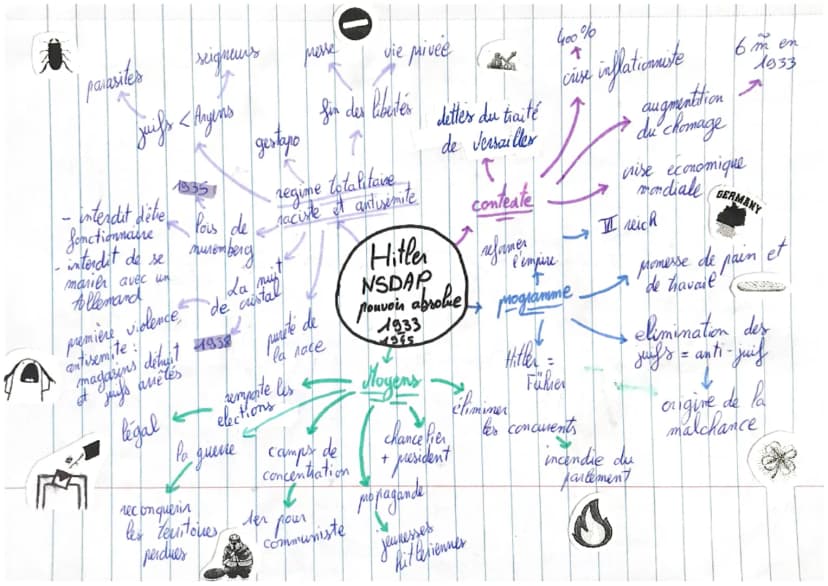 Hitler
NSDAP
pouvoir absolue
1933
1945
contexte
dettes du traité
de Versailles
crise inflationniste
400%
augmentation
du chomage
6 m en
1933
crise économique
mondiale
GERMANY
programme
reformer
l'empire
reich
promesse de pain et
de travail
elimination des
juifs = anti-juif
origine de la
malchance
Hitler =
Führer
Moyens
éliminer
les concurents
incendie du
parlement
chancelier
+ president
propagande
jeunesses
hitlériennes
camps de
concentration
1er pour
communiste
la guerre
reconquerir
les territoires
perdues
remporte les
elections
légal
regime totalitaire
raciste et antisémite
fin des libertés
presse
vie privée
gestapo
juifs < Aryens
parasites
seigneurs
lois de
nuremberg
1935
- interdit d'être
fonctionnaire
- interdit de se
marier avec un
Allemand
La nuit
de cristal
1938
première violence
antisemite :
magasins détruit
et juifs arrêtés
pureté de
la race